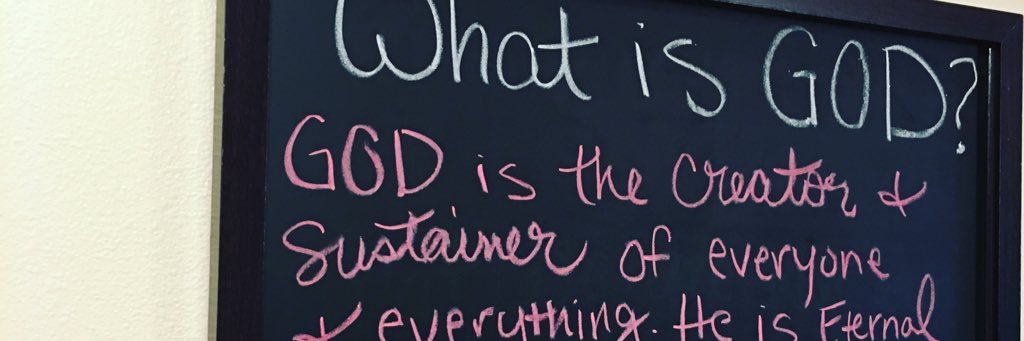 What is GOD?
GOD is the Creator &
Sustainer of everyone
& everything. He is Eternal